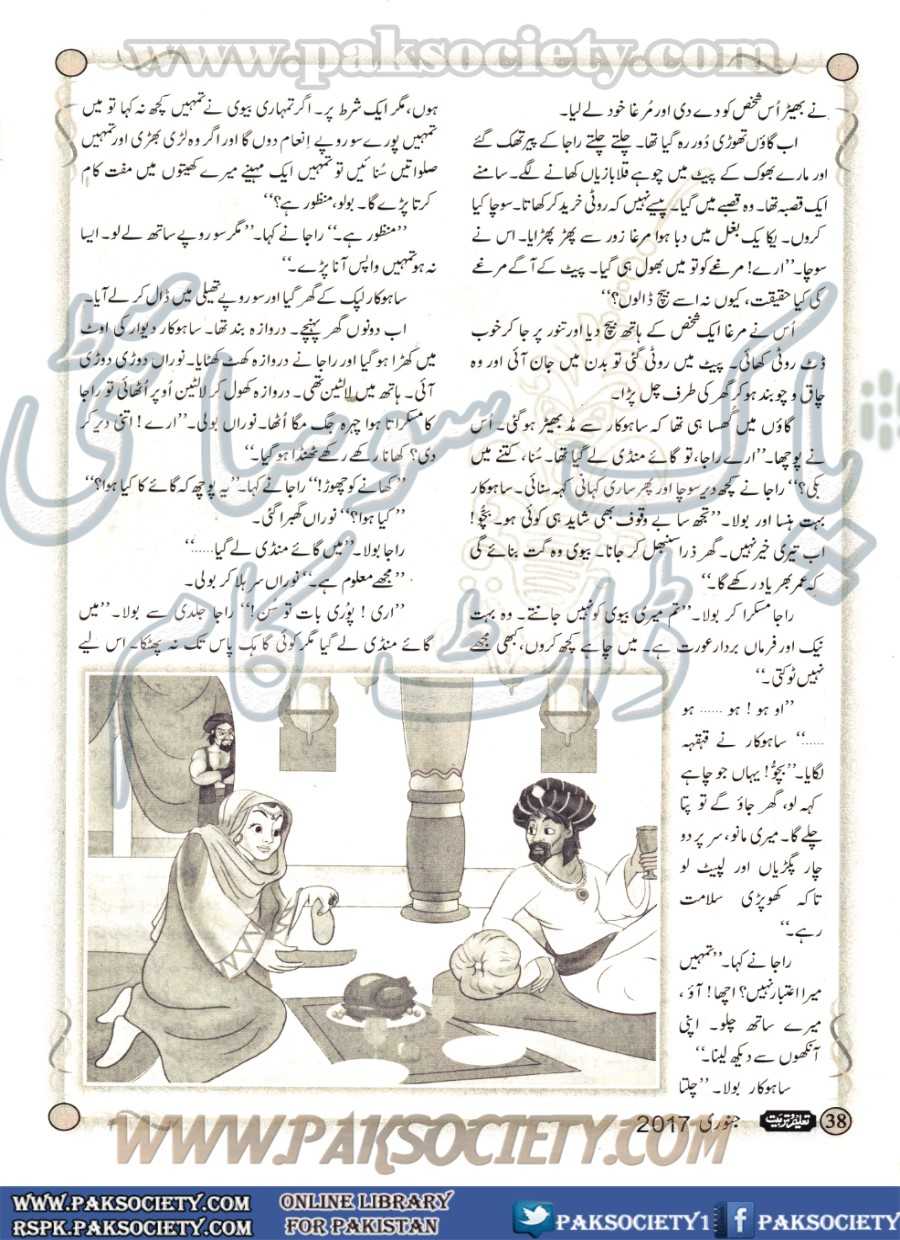 www.paksociety.com
نے بھیڑ اُس شخص کو دے دی اور مُرغا خود لے لیا۔
اب گاؤں تھوڑی دُور رہ گیا تھا۔ چلتے چلتے راجا کے پیر تھک گئے
اور مارے بھوک کے پیٹ میں چوہے قلابازیاں کھانے لگے۔ سامنے
ایک قصبہ تھا۔ وہ قصبے میں گیا۔ پیسے نہیں کہ روٹی خرید کر کھاتا۔ سوچا کیا
کروں۔ یکایک بغل میں دبا ہوا مرغا زور سے پھڑ پھڑایا۔ اس نے
سوچا۔ ’’ارے! مرغے کو تو میں بھول ہی گیا۔ پیٹ کے آگے مرغے
کی کیا حقیقت، کیوں نہ اسے بیچ ڈالوں؟‘‘
اُس نے مرغا ایک شخص کے ہاتھ بیچ دیا اور تنور پر جا کر خوب
ڈٹ روٹی کھائی۔ پیٹ میں روٹی گئی تو بدن میں جان آئی اور وہ
چاق و چوبند ہو کر گھر کی طرف چل پڑا۔
گاؤں میں گُھسا ہی تھا کہ ساہوکار سے مڈ بھیڑ ہو گئی۔ اُس
نے پوچھا۔ ’’ارے راجا، تو گائے منڈی لے گیا تھا۔ سُنا، کتنے میں
بکی؟‘‘ راجا نے کچھ دیر سوچا اور پھر ساری کہانی کہہ سنائی۔ ساہوکار
بہت ہنسا اور بولا۔ ’’تجھ سا بے وقوف بھی شاید ہی کوئی ہو۔ بچُّو!
اب تیری خیر نہیں۔ گھر ذرا سنبھل کر جانا۔ بیوی وہ گت بنائے گی
کہ عمر بھر یاد رکھے گا۔‘‘
راجا مسکرا کر بولا۔ ’’تم میری بیوی کو نہیں جانتے۔ وہ بہت
نیک اور فرماں بردار عورت ہے۔ میں چاہے کچھ کروں، کبھی مجھے
نہیں ٹوکتی۔‘‘
’’او ہو! ہو ...... ہو
......‘‘ ساہوکار نے قہقہہ
لگایا۔ ’’بچُّو! یہاں جو چاہے
کہہ لو، گھر جاؤ گے تو پتا
چلے گا۔ میری مانو، سر پر دو
چار پگڑیاں اور لپیٹ لو
تاکہ کھوپڑی سلامت
رہے۔‘‘
راجا نے کہا۔ ’’تمہیں
میرا اعتبار نہیں؟ اچھا! آؤ،
میرے ساتھ چلو۔ اپنی
آنکھوں سے دیکھ لینا۔‘‘
ساہوکار بولا۔ ’’چلتا
ہوں، مگر ایک شرط پر۔ اگر تمہاری بیوی نے تمہیں کچھ نہ کہا تو میں
تمہیں پورے سو روپے انعام دوں گا اور اگر وہ لڑی بھڑی اور تمہیں
صلواتیں سُنائیں تو تمہیں ایک مہینے میرے کھیتوں میں مفت کام
کرنا پڑے گا۔ بولو، منظور ہے؟‘‘
’’منظور ہے۔‘‘ راجا نے کہا۔ ’’مگر سو روپے ساتھ لے لو۔ ایسا
نہ ہو تمہیں واپس آنا پڑے۔‘‘
ساہوکار لپک کے گھر گیا اور سو روپے تھیلی میں ڈال کر لے آیا۔
اب دونوں گھر پہنچے۔ دروازہ بند تھا۔ ساہوکار دیوار کی اوٹ
میں کھڑا ہو گیا اور راجا نے دروازہ کھٹ کھٹایا۔ نوراں دوڑی دوڑی
آئی۔ ہاتھ میں لالٹین تھی۔ دروازہ کھول کر لالٹین اُوپر اُٹھائی تو راجا
کا مسکراتا ہوا چہرہ جگ مگا اُٹھا۔ نوراں بولی۔ ’’ارے! اتنی دیر کر
دی؟ کھانا رکھے رکھے ٹھنڈا ہو گیا۔‘‘
’’کھانے کو چھوڑ!‘‘ راجا نے کہا۔ ’’یہ پوچھ کہ گائے کا کیا ہوا؟‘‘
’’کیا ہوا؟‘‘ نوراں گھبرا گئی۔
راجا بولا۔ ’’میں گائے منڈی لے گیا......‘‘
’’مجھے معلوم ہے۔‘‘ نوراں سر ہلا کر بولی۔
’’اری! پوُری بات تو سُن!‘‘ راجا جلدی سے بولا۔ ’’میں
گائے منڈی لے گیا مگر کوئی گاہک پاس تک نہ پھٹکا۔ اس لیے
پاک سوسائٹی
ڈاٹ کام
38 تعلیم و تربیت جنوری 2017
WWW.PAKSOCIETY.COM
WWW.PAKSOCIETY.COM
RSPK.PAKSOCIETY.COM
ONLINE LIBRARY
FOR PAKISTAN
PAKSOCIETY1
PAKSOCIETY